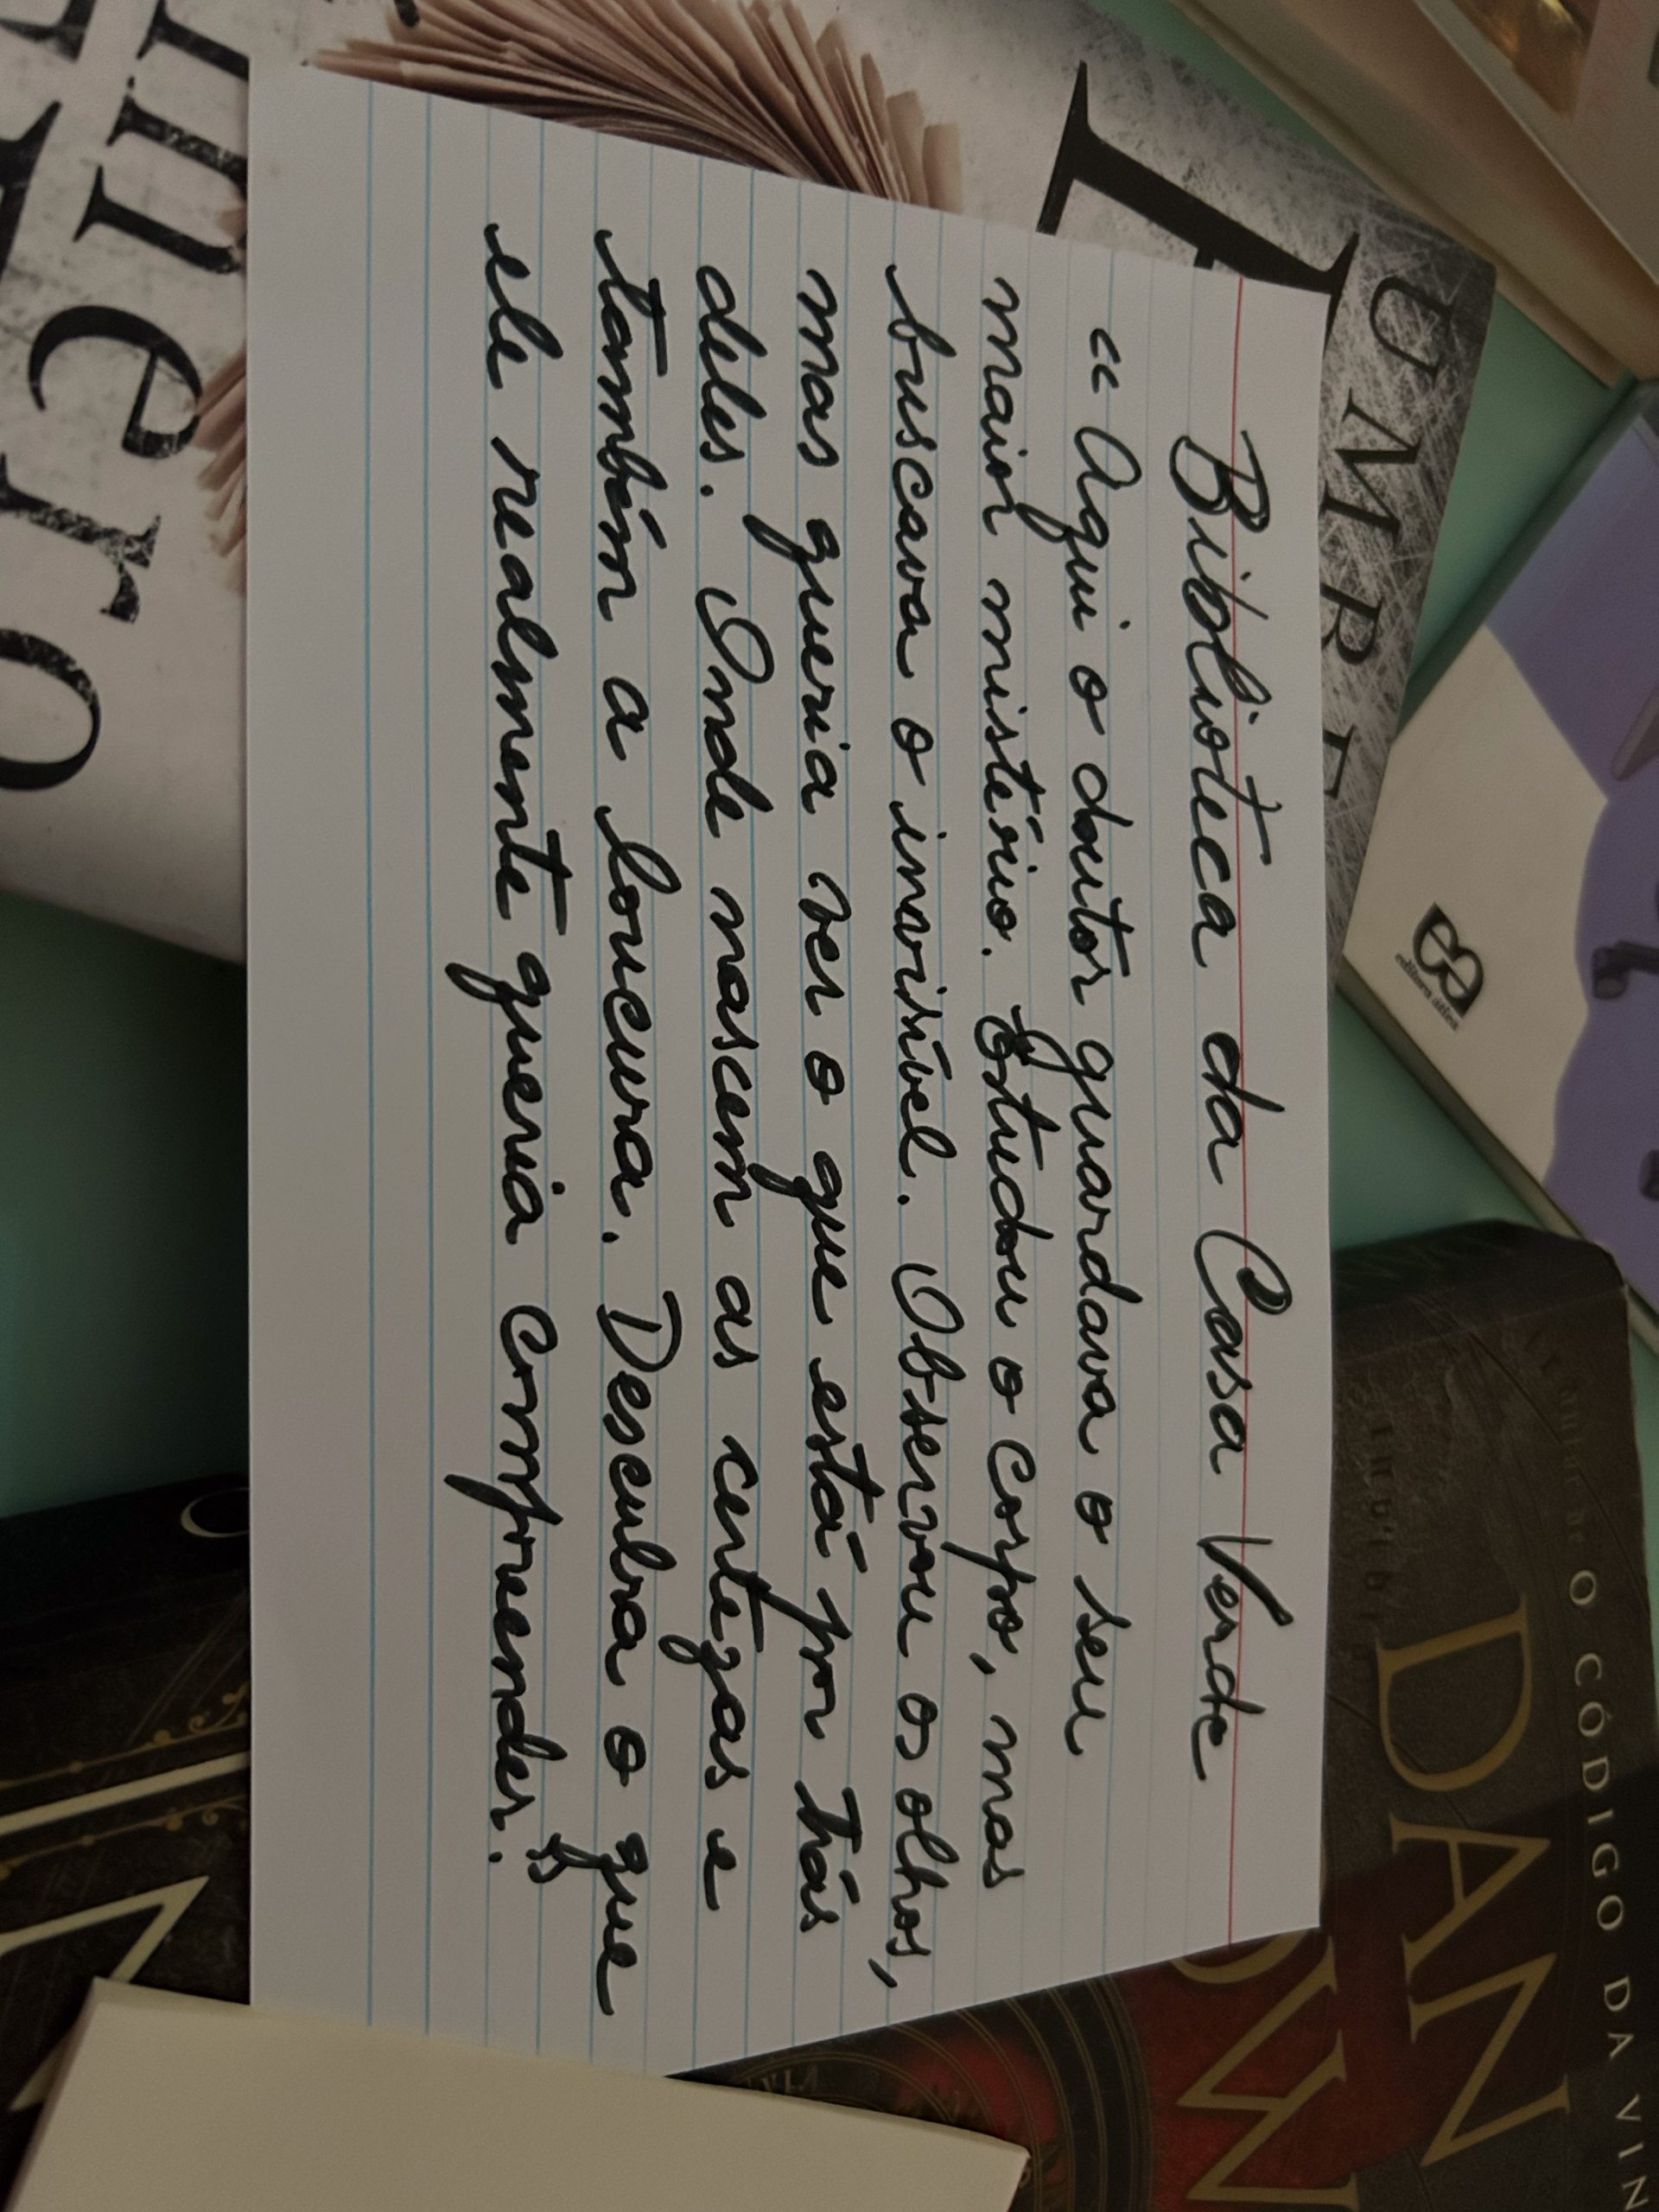 Biblioteca da Casa Verde
"Aqui o doutor guardava o seu
maior mistério. Estudou o corpo, mas
buscava o invisível. Observou os olhos,
mas queria ver o que está por trás
deles. Onde nascem as certezas e
também a loucura. Descubra o que
ele realmente queria compreender."
UMBE
ea
editora ática
O CÓDIGO DA VIN
DAN
OW
nero